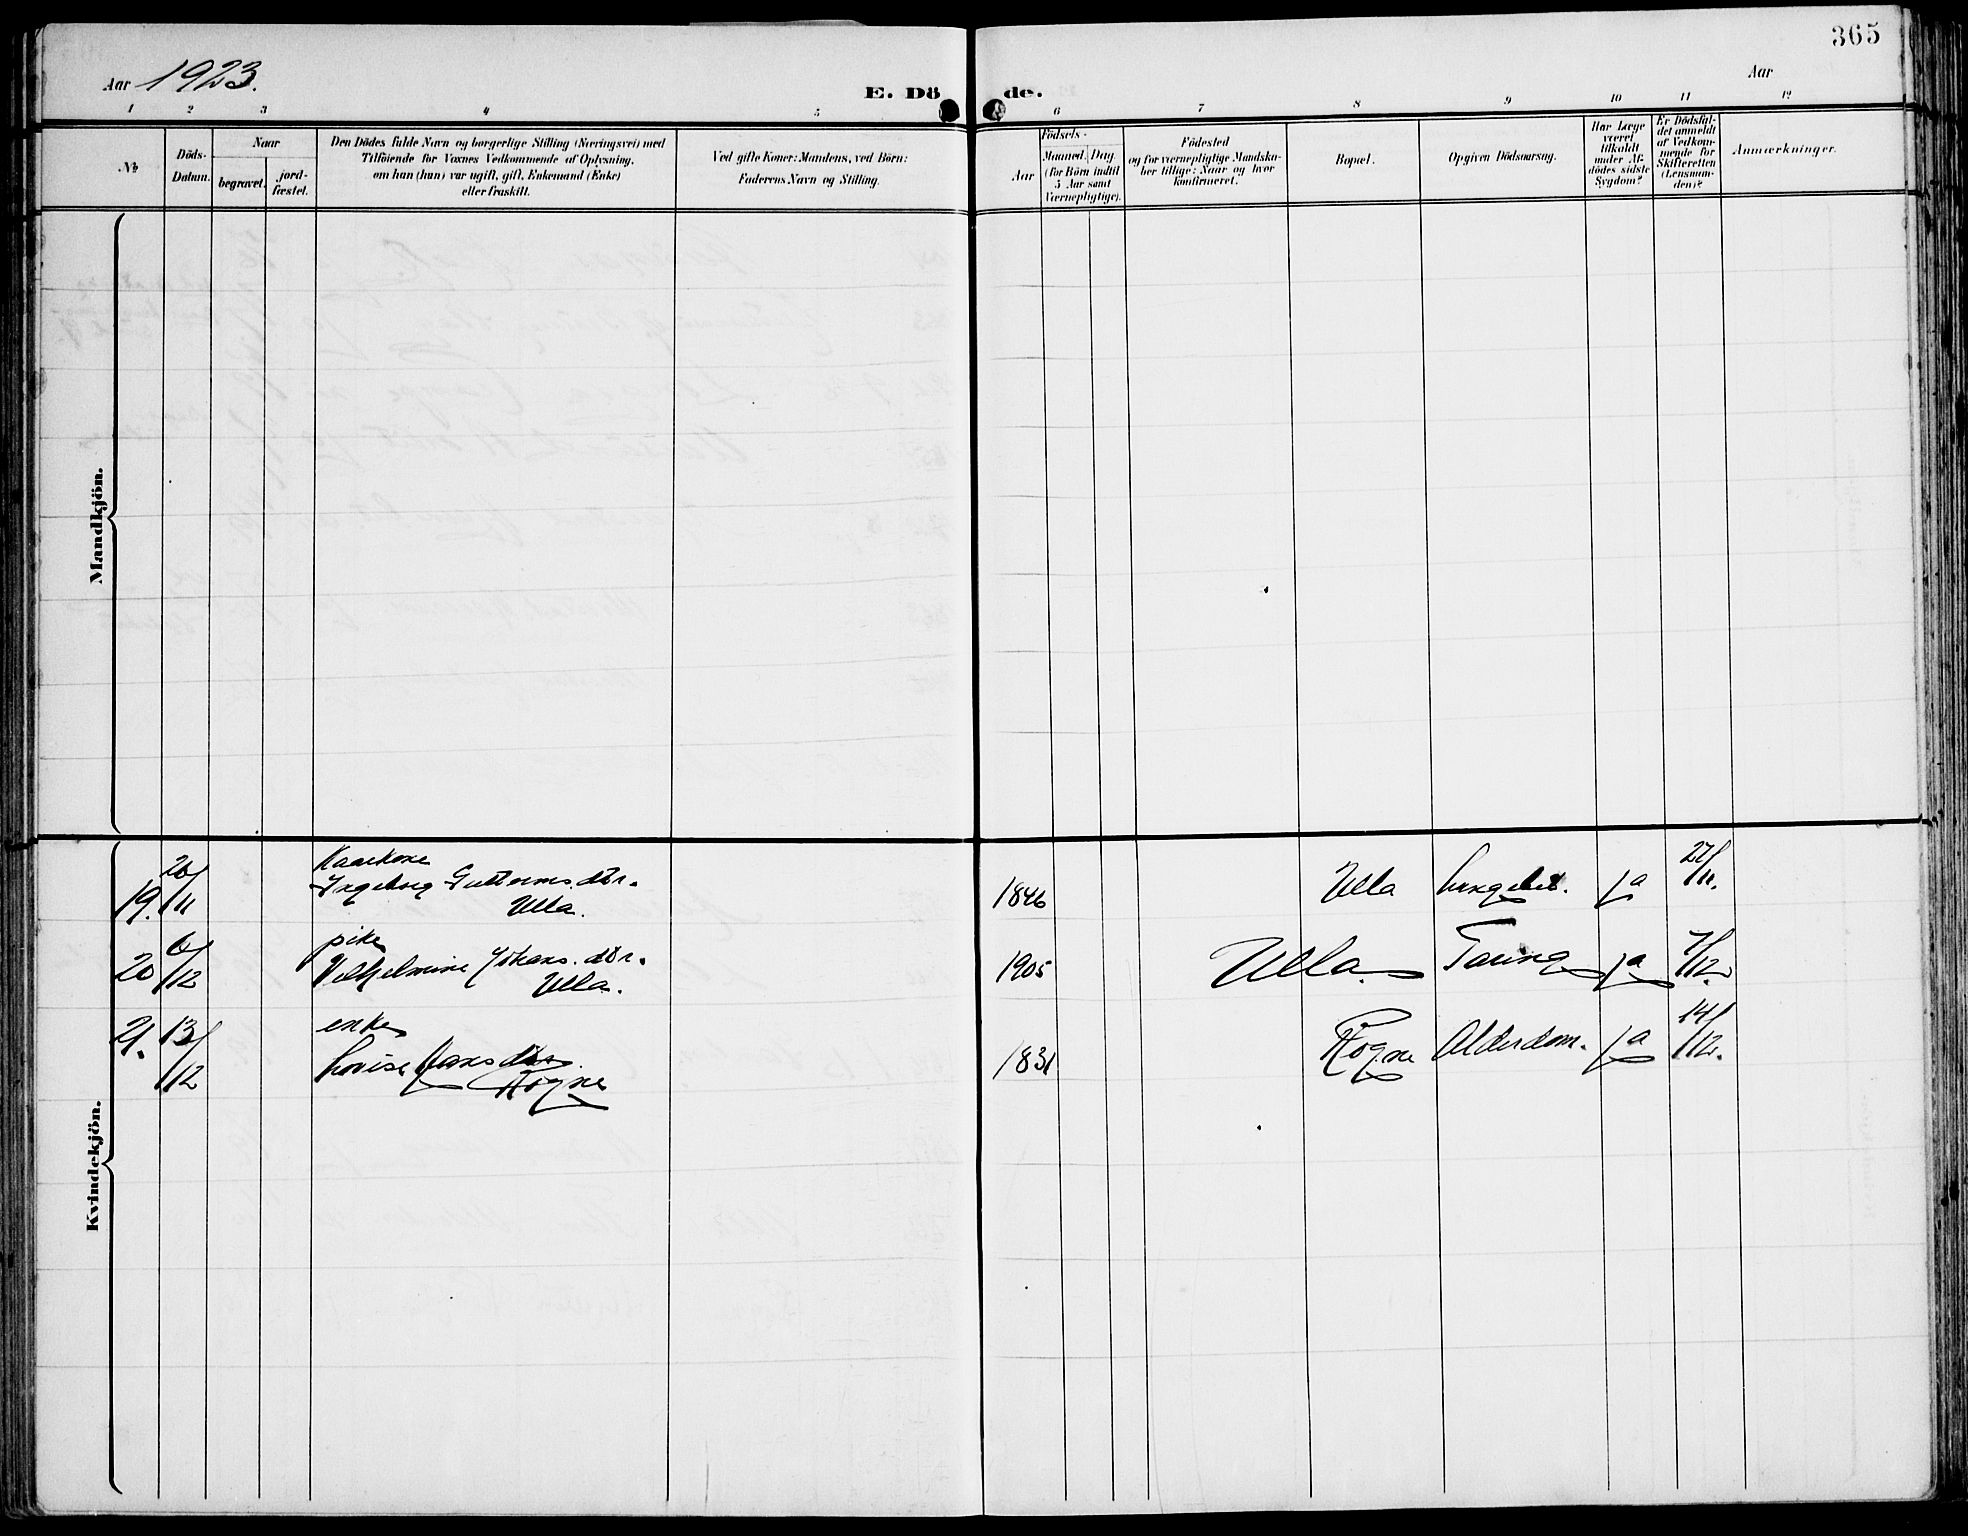 365
Aar 1923.
E. Döde.
Aar
1 2 3 4 5 6 7 8 9 10 11 12
No
Döds-
Datum.
Naar
begravet.
jord-
fæstet.
Den Dödes fulde Navn og borgerlige Stilling (Næringsvei) med
Tilföiende for Voxnes Vedkommende af Oplysning,
om han (hun) var ugift, gift, Enkemand (Enke)
eller fraskilt.
Ved gifte Koner: Mandens, ved Börn:
Faderens Navn og Stilling.
Födsels-
Aar
Maaned. Dag.
(for Börn indtil
5 Aar samt
Værnepligtige).
Födested
og for værnepligtige Mandska-
ber tillige: Naar og hvor
konfirmeret.
Bopæl.
Opgiven Dödsaarsag.
Har Læge
været
tilkaldt
under Af-
dödes sidste
Sygdom?
Er Dödsfal-
det anmeldt
af Vedkom-
mende for
Skifteretten
(Lensman-
den)?
Anmærkninger.
Mandkjön.
Kvindekjön.
19. 26/11 Kaarkone
Ingeborg Guttorms.dtr.
Ulla.
1846 Ulla ja 27/11.
20 6/12 pike
Vilhelmine Johans.dtr.
Ulla.
1905 Ulla. Taring ja 7/12.
21. 13/12 enke
Lovise Hansdtr
Rogne
1831 Rogne Alderdom. ja 14/12.